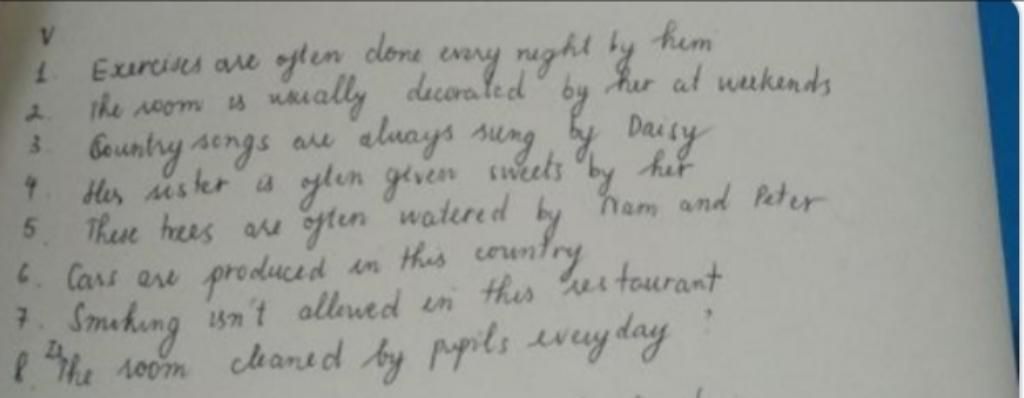 V
1. Exercises are often done every night by him
2. The room is usually decorated by her at weekends
3. Country songs are always sung by Daisy
4. Her sister is often given sweets by her
5. These trees are often watered by Nam and Peter
6. Cars are produced in this country
7. Smoking isn't allowed in this restaurant
8. Is the room cleaned by pupils everyday ?